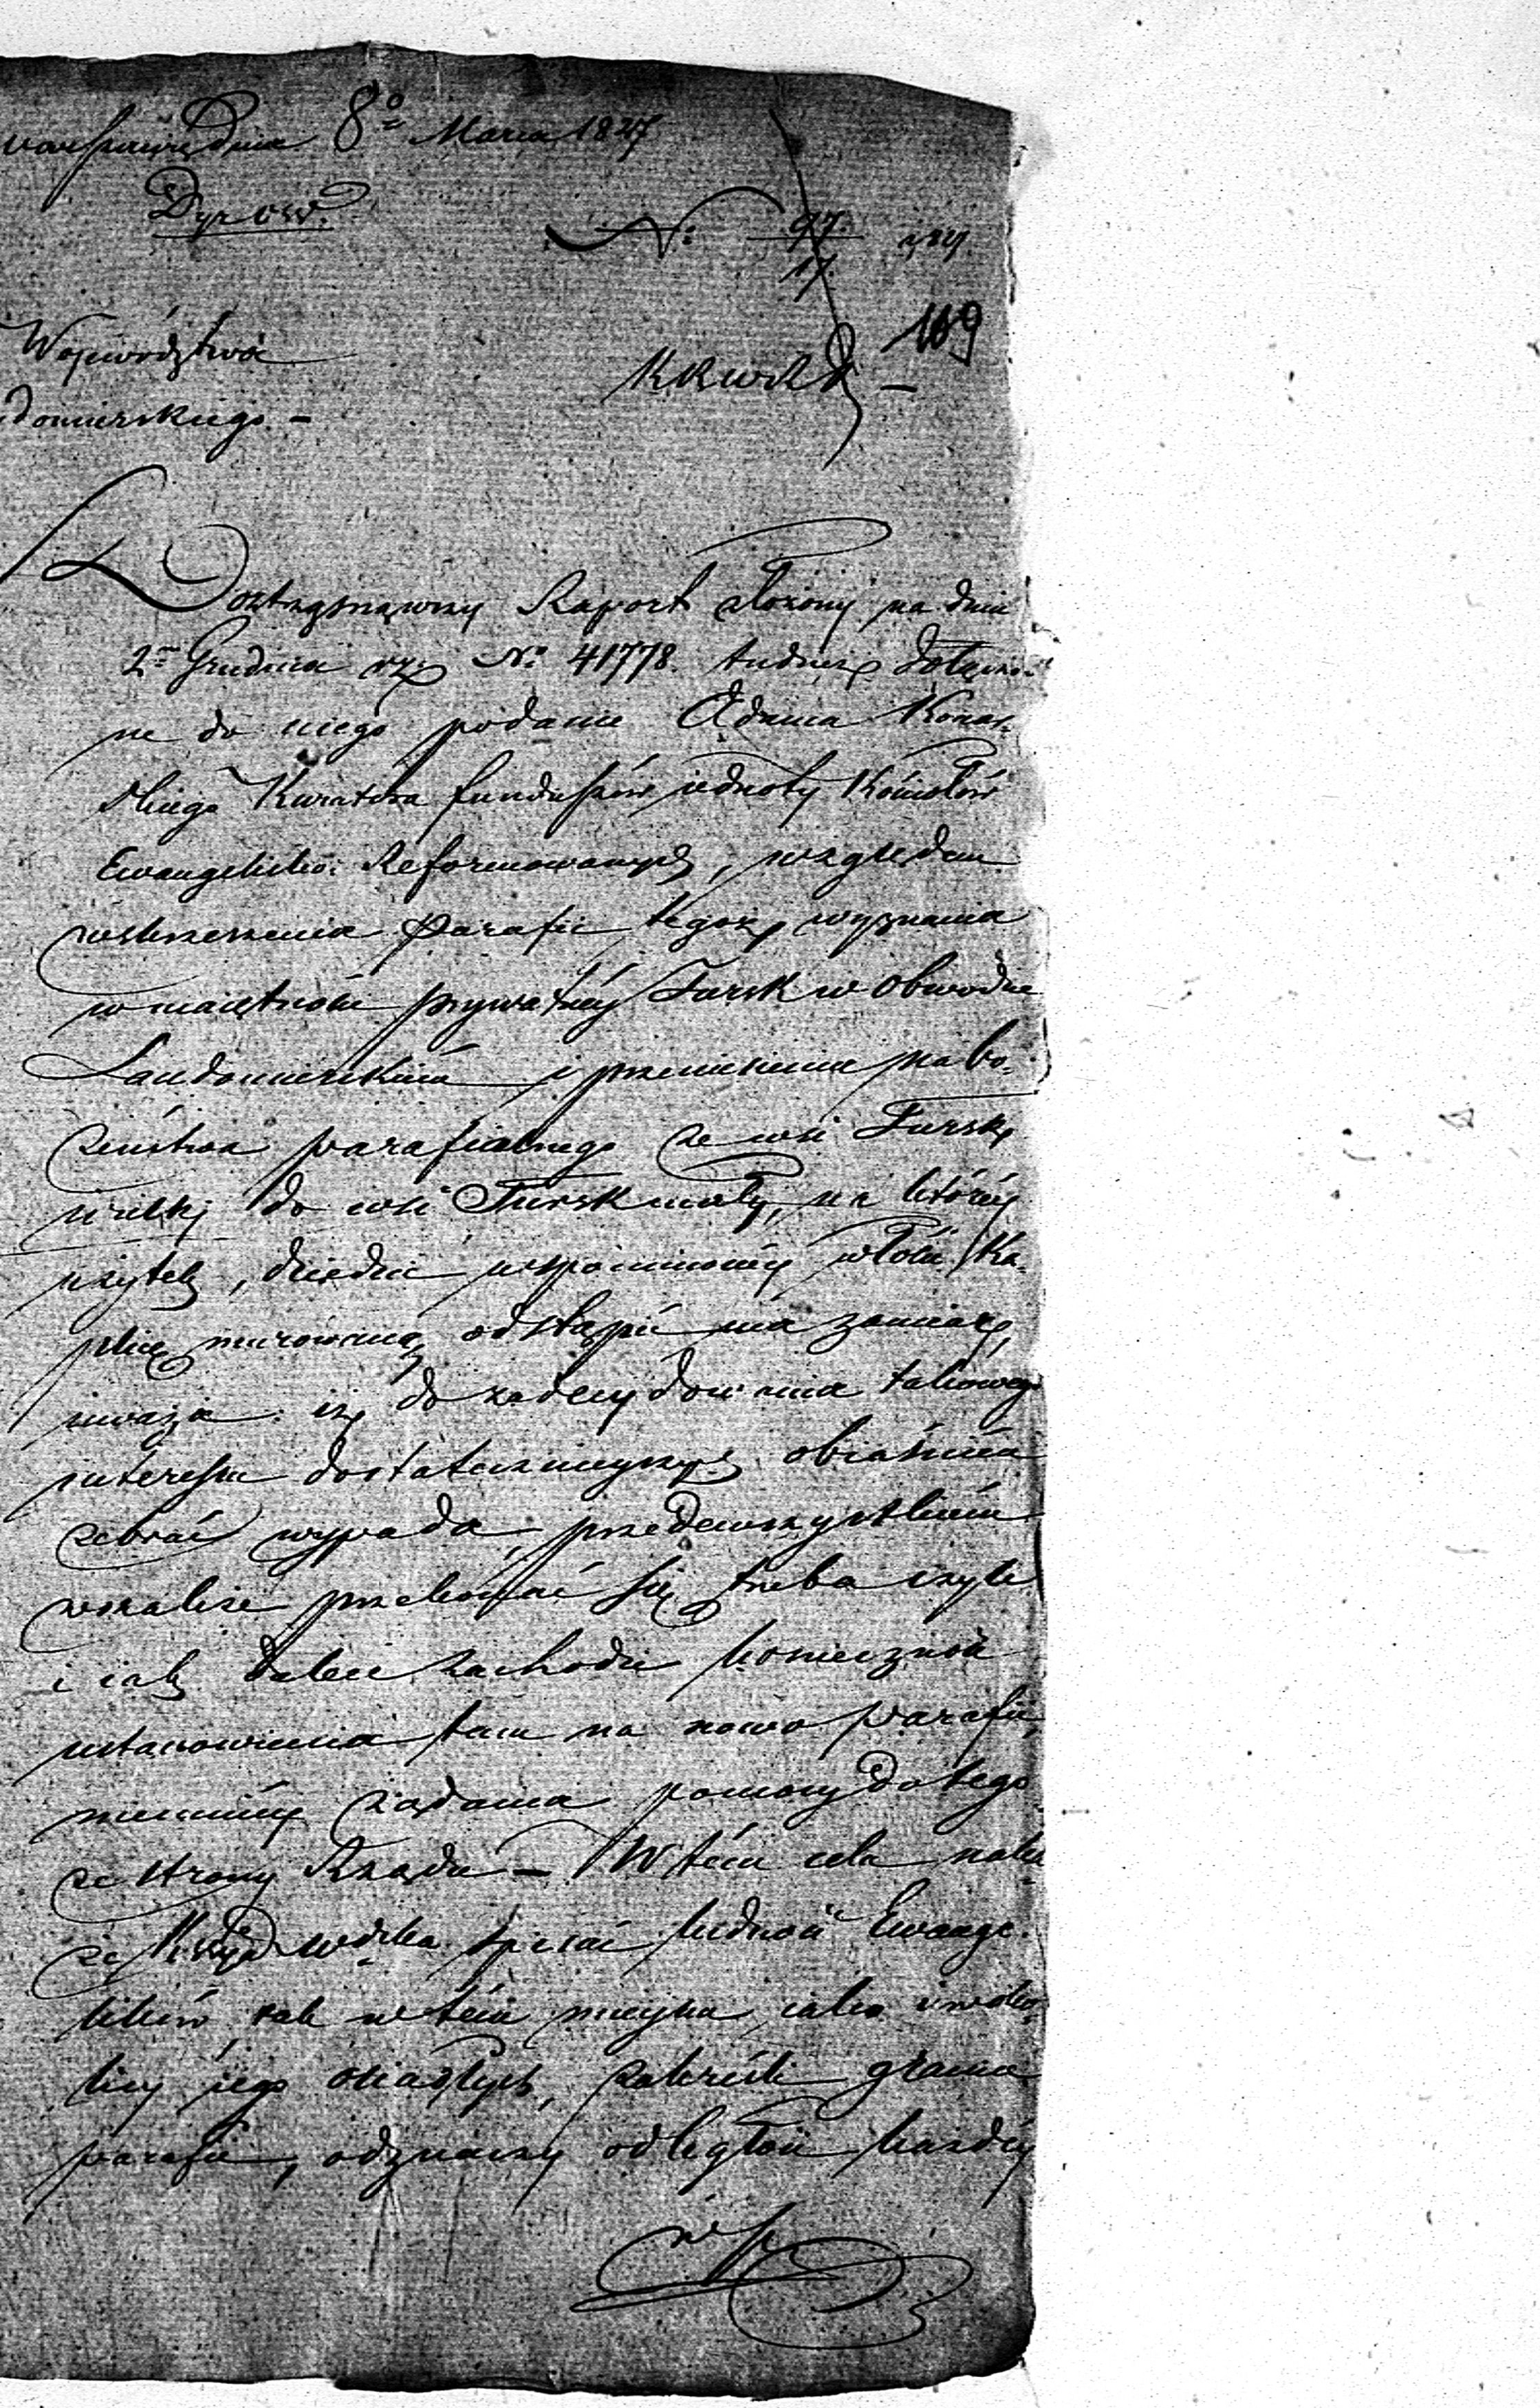 dnia 8º Marca 1827
Dyr. ow.
Nº 97/17
169
Województwa
domierskiego. –
Roztrząsnąwszy Raport złożony na dniu
2º Grudnia rz Nº 41778. tudzież dołączo-
ne do niego podanie Adama Konar-
skiego Kuratora funduszów jednoty Kościołów
Ewangelicko: Reformowanych, względem
wskrzeszenia Parafii tegoż wyznania
w maiętności prywatnéy Tursk w Obwodzie
Sandomierskim i przeniesienia nabo-
żeństwa parafialnego ze wsi Tursk
wielki do wsi Tursk mały, na któréy
użytek, dziedzic wspomnionéy włości Ka-
plicę murowaną odstąpić ma zamiar,
uważa: iż do zadecydowania takowego
interessu dostatecznieyszych obiaśnień
zebrać wypada, przedewszystkiém
wszakże przekonać się trzeba czyli
i iak dalece zachodzi konieczność
ustanowienia tam na nowo parafii,
mniemniéy żądania pomocy do tego
ze strony Rządu – W tém celu nale-
ży spisać ludność Ewange-
lików tak w tém mieyscu iako i w oko-
licy jego osiadłych, zakreśli granice
parafii, oznaczy odległość każdéy